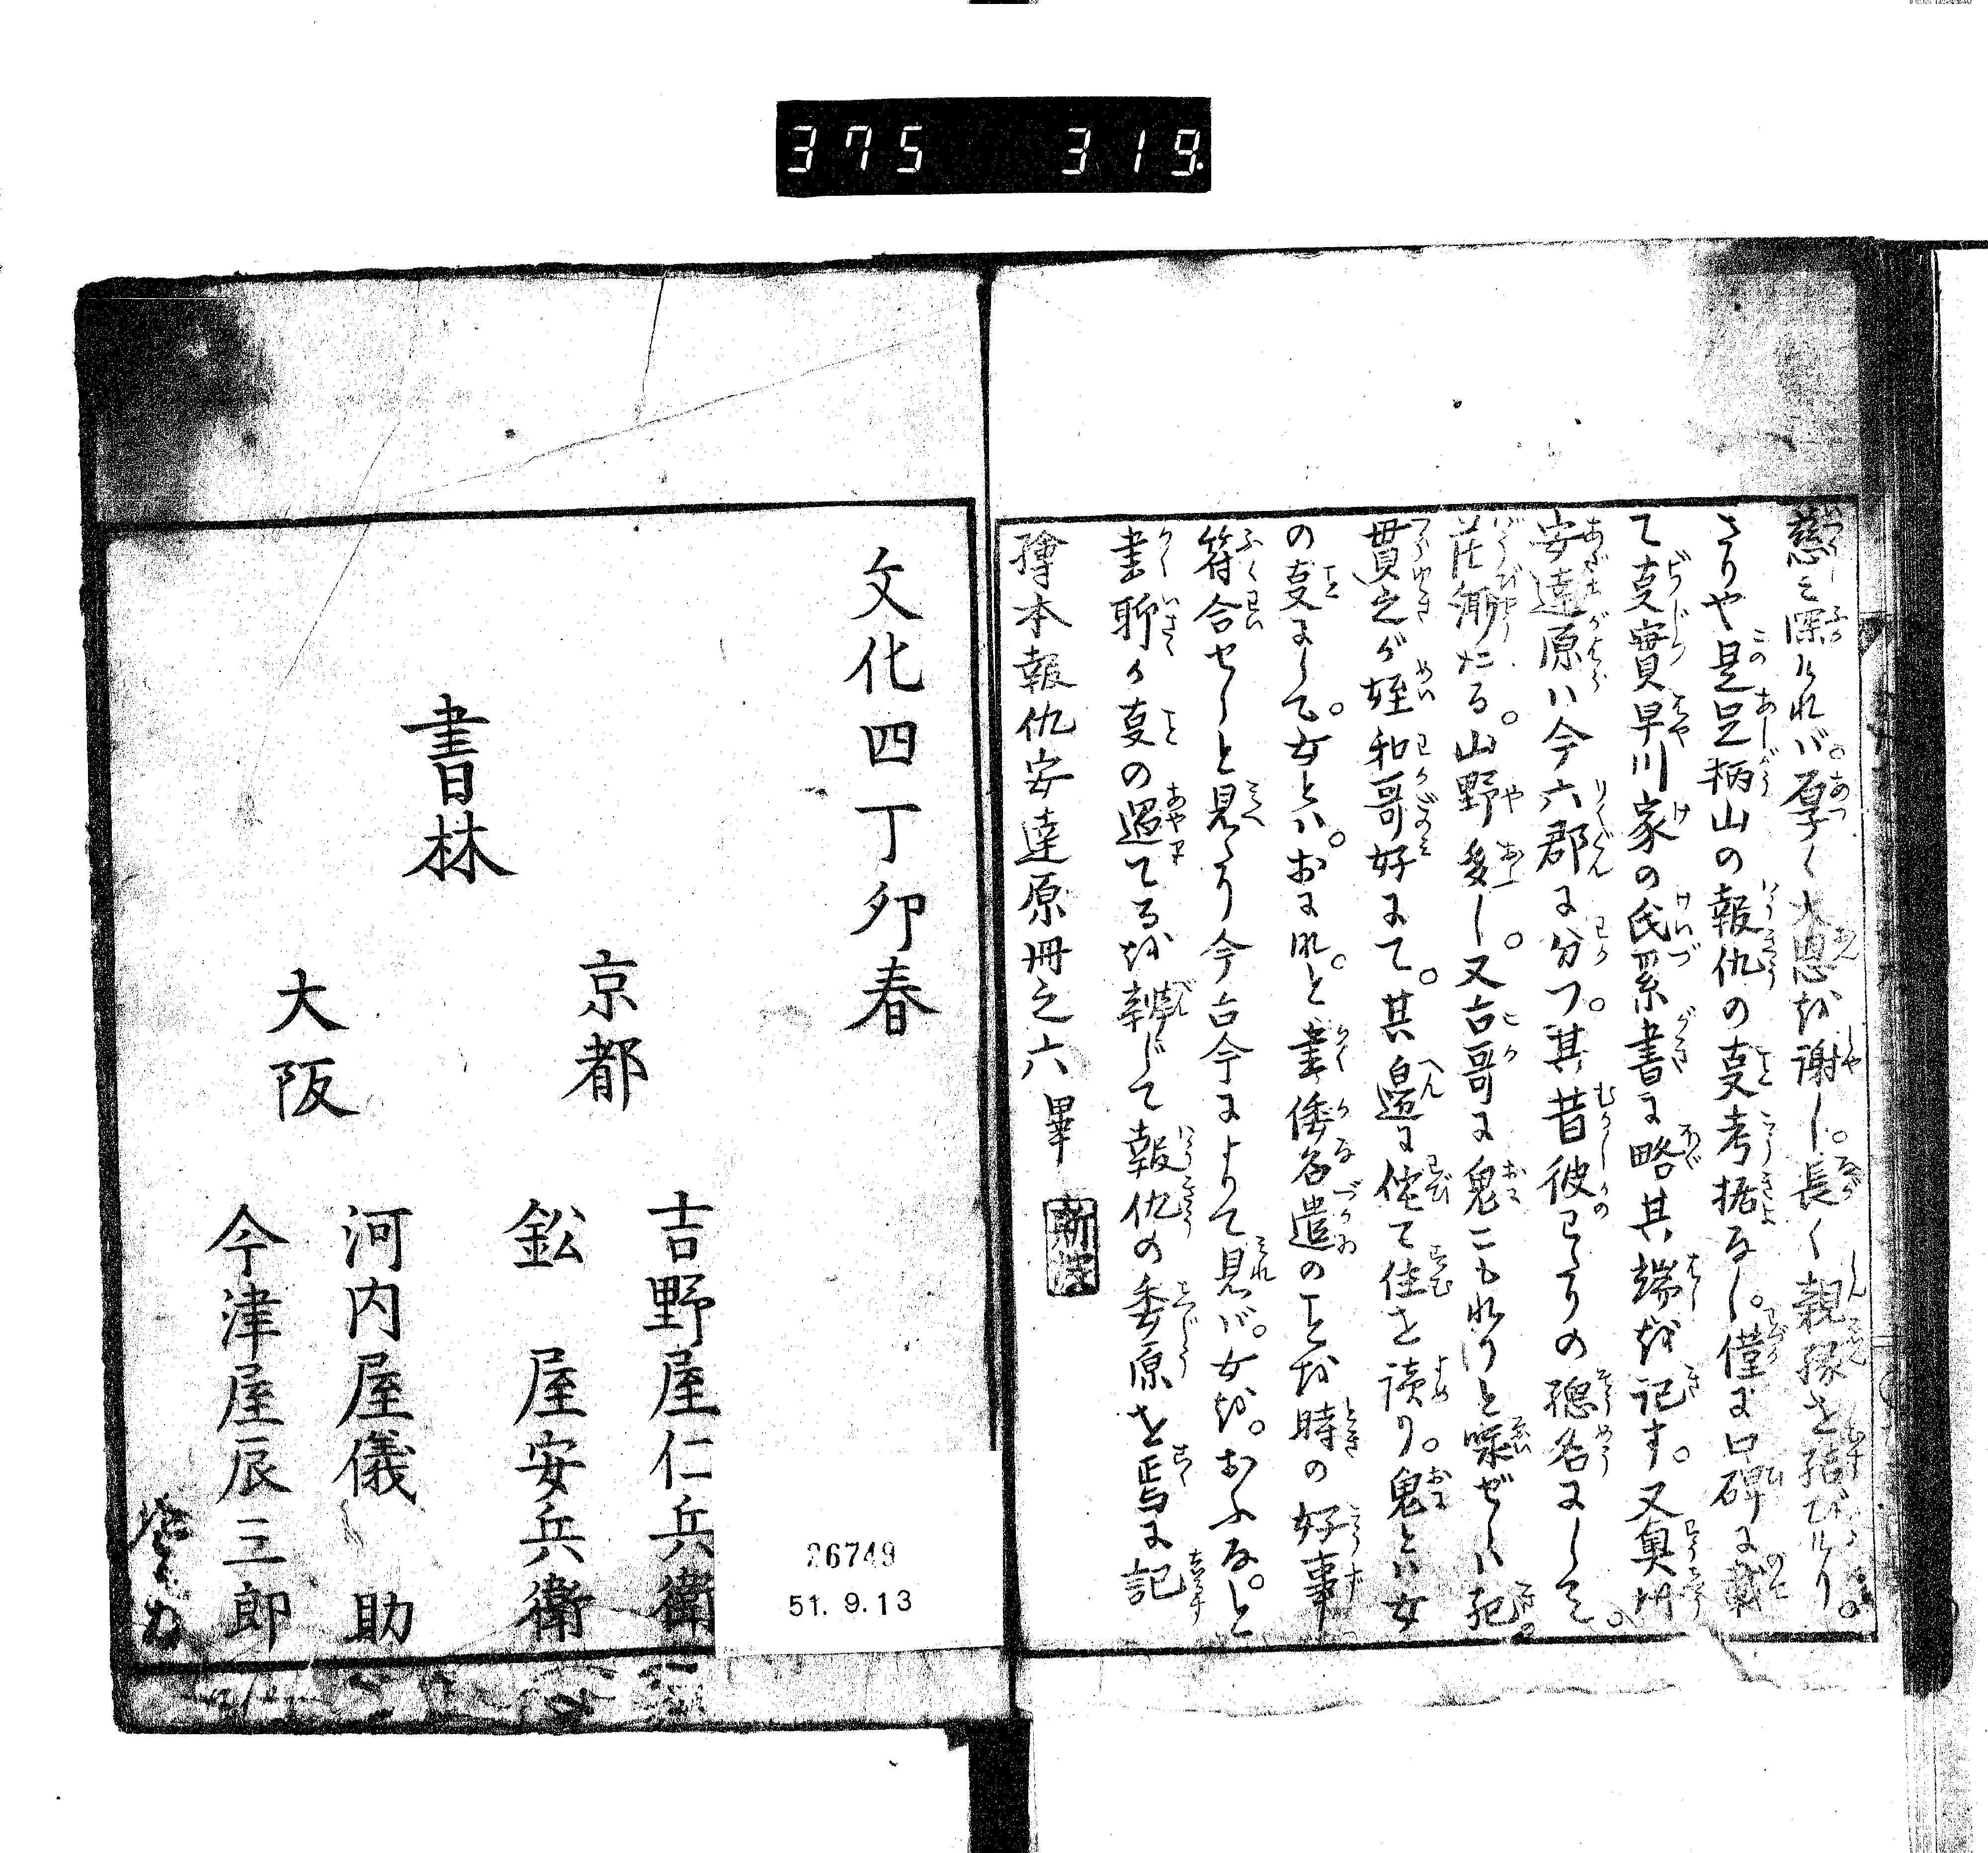 375 319
慈ミ深けれバ。厚く大恩を謝し。長く親縁を結びけり。
さりや是足柄山の報仇の叓考拠なし。僅に口碑に載
て叓實早川家の氏系書に略其端を記す。又奥州
安達原ハ今六郡に分つ。其昔彼わたりの摠名にして。
茫渺たる。山野多し。又古哥に鬼こもれりと詠ぜしハ
貫之が姪和哥好にて。其邉に侘て住を読り。鬼とハ女
の叓にして。女とハ。おに也。と書倭名遣のことを時の好事
符合せしと見へたり今古今によりて見れバ。女を。おふな。と
書聊か叓の過てるを辨じて報仇の委原を焉に記
繪本報仇安達原冊之六畢
文化四丁卯春
書林
京都
吉野屋仁兵衛
鉛屋安兵衛
大阪
河内屋儀助
今津屋辰三郎
26749
51.9.13